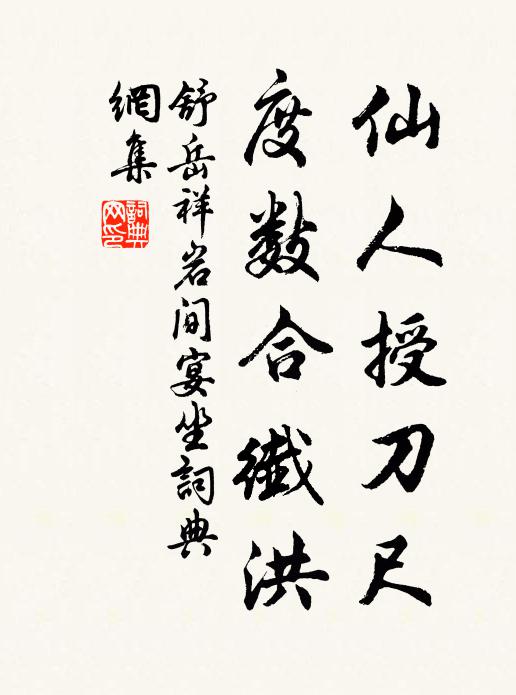 仙人授刀尺
度数合纖洪
舒岳祥岩间宴坐詞典
網集
詞典
网印